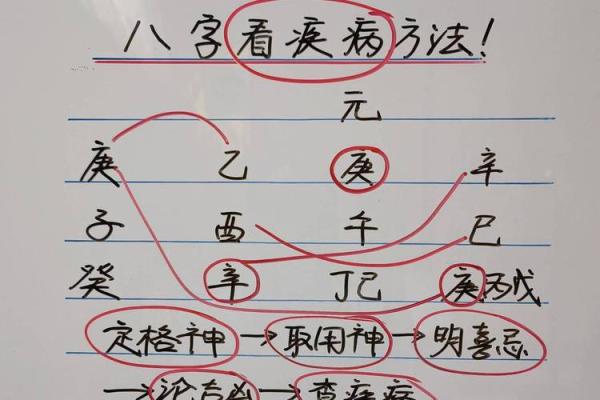 八字看疾病方法！
元
庚 乙 庚 辛
子 酉 午 巳
癸 辛 丁己 庚丙戊
定格神→取用神→明喜忌
→论吉凶→查疾病